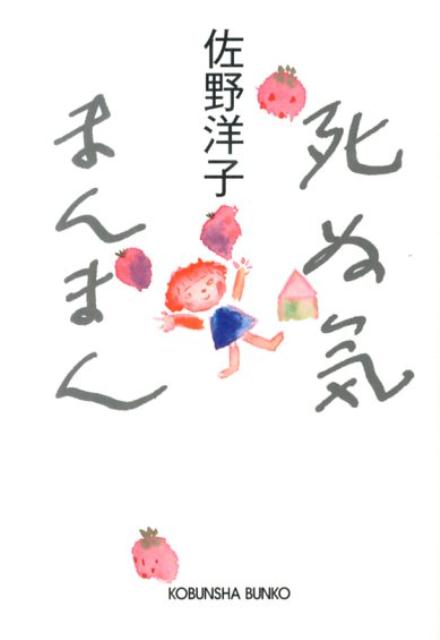 死ぬ気
まんまん
佐野洋子
KOBUNSHA BUNKO